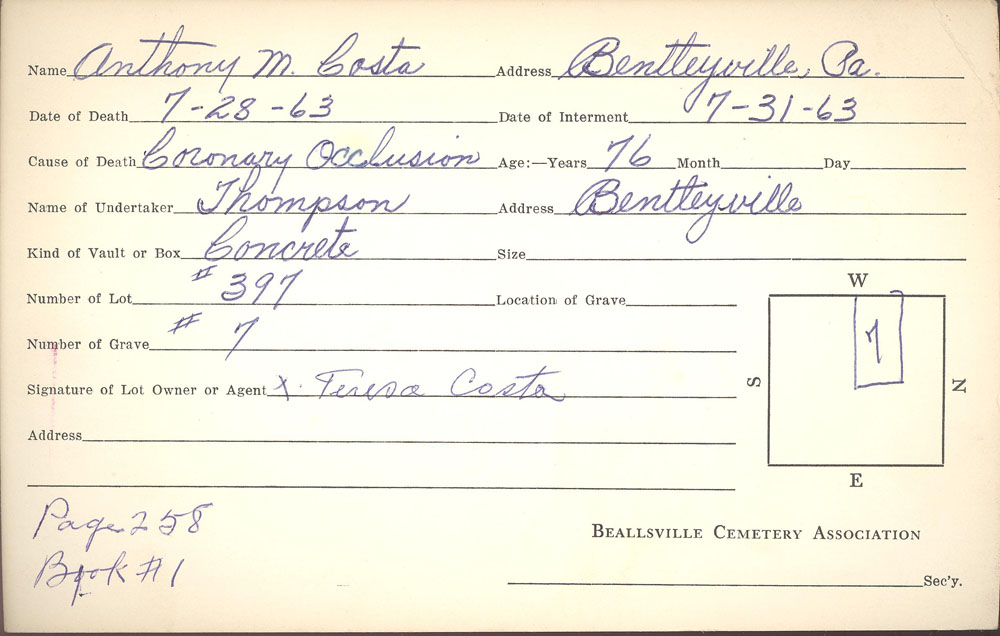 Name Anthony M. Costa Address Bentleyville, Pa.
Date of Death 7-28-63 Date of Interment 7-31-63
Cause of Death Coronary Occlusion Age:—Years 76 Month Day
Name of Undertaker Thompson Address Bentleyville
Kind of Vault or Box Concrete Size
Number of Lot # 397 Location of Grave
Number of Grave # 7
Signature of Lot Owner or Agent X. Teresa Costa
Address
W
S 7 N
E
Page 258
Book #1
BEALLSVILLE CEMETERY ASSOCIATION
Sec'y.